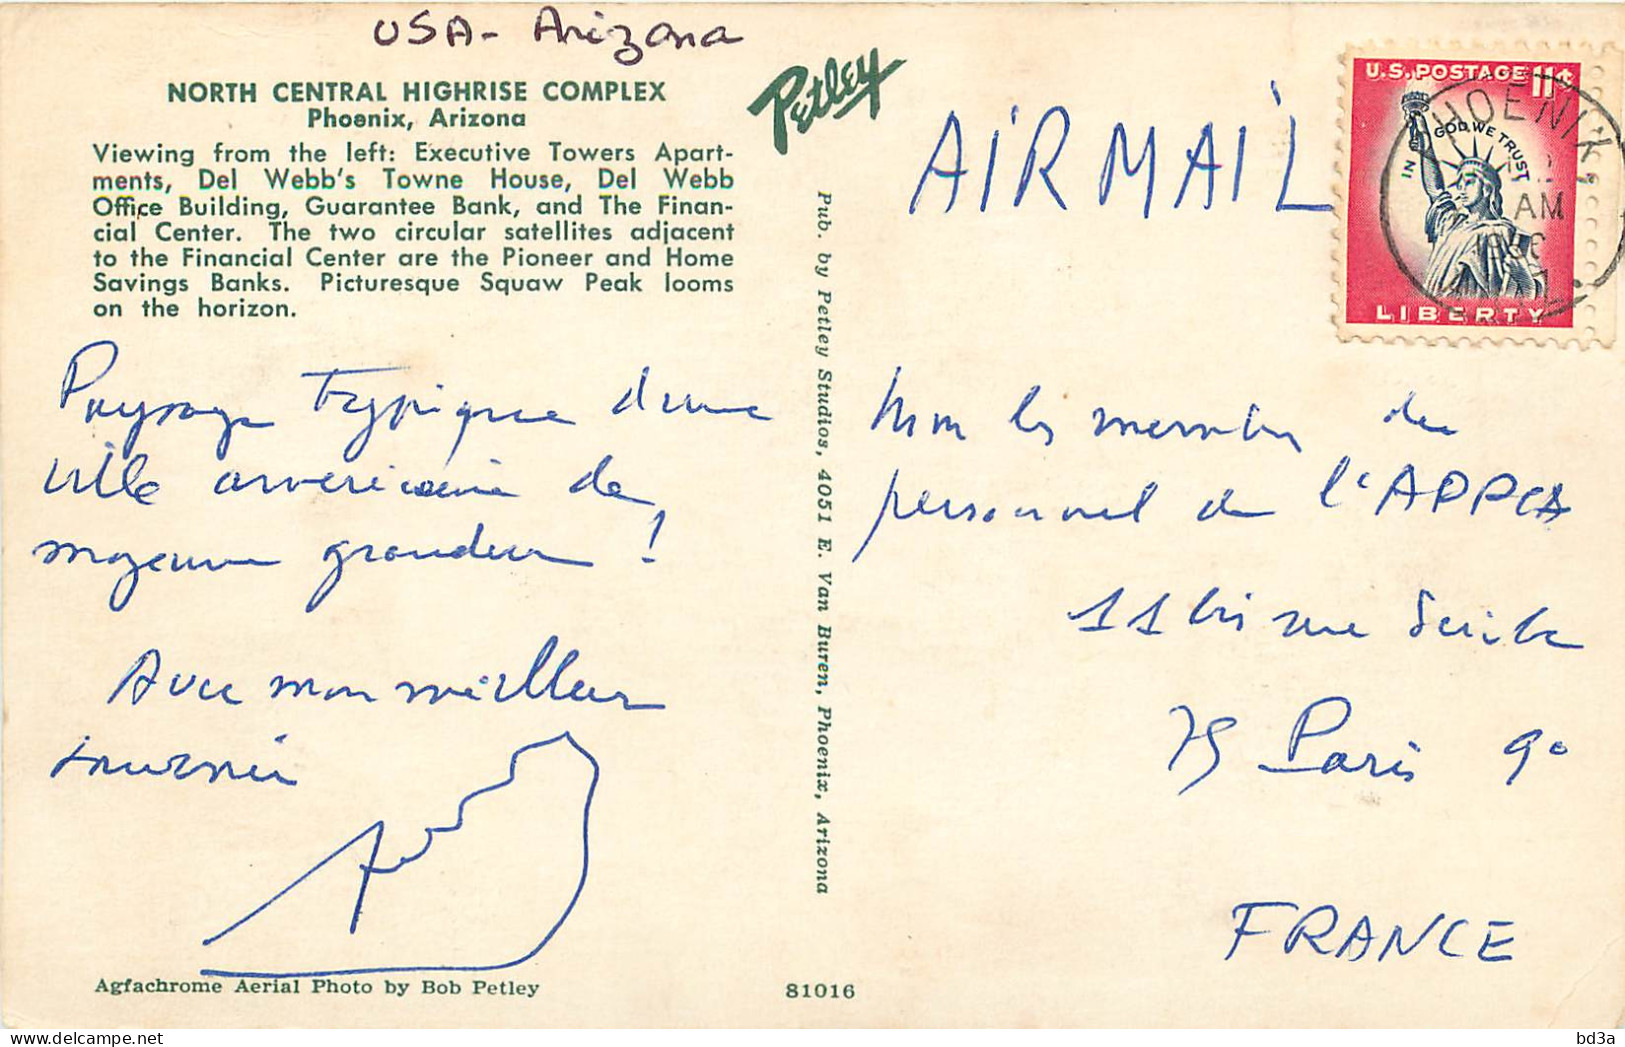 USA - Arizona
NORTH CENTRAL HIGHRISE COMPLEX
Phoenix, Arizona
Viewing from the left: Executive Towers Apart-
ments, Del Webb's Towne House, Del Webb
Office Building, Guarantee Bank, and The Finan-
cial Center. The two circular satellites adjacent
to the Financial Center are the Pioneer and Home
Savings Banks. Picturesque Squaw Peak looms
on the horizon.
Paysage typique d'une
ville américaine de
moyenne grandeur !
Avec mon meilleur
souvenir
Agfachrome Aerial Photo by Bob Petley
Petley
Pub. by Petley Studios, 4051 E. Van Buren, Phoenix, Arizona
81016
AIR MAIL
U.S. POSTAGE 11¢
IN GOD WE TRUST
LIBERTY
PHOENIX,
AM
les membres du
personnel de l'APPCA
11 bis rue
75 Paris 9°
FRANCE
bd3a